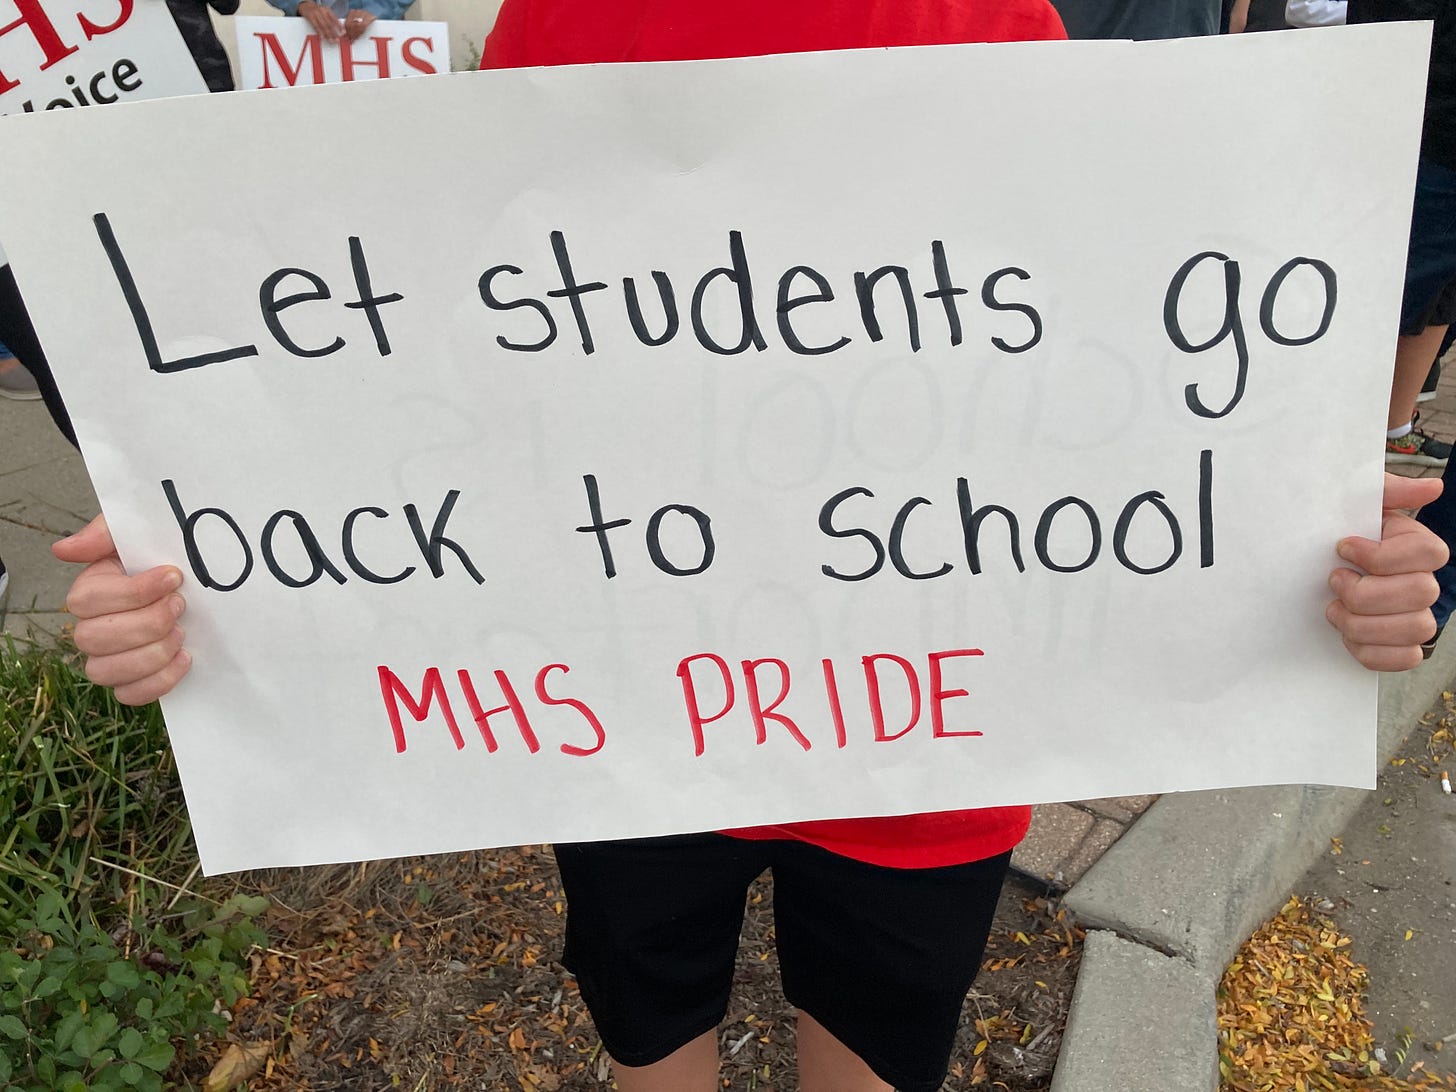 MHS
Let students go
back to school
MHS PRIDE